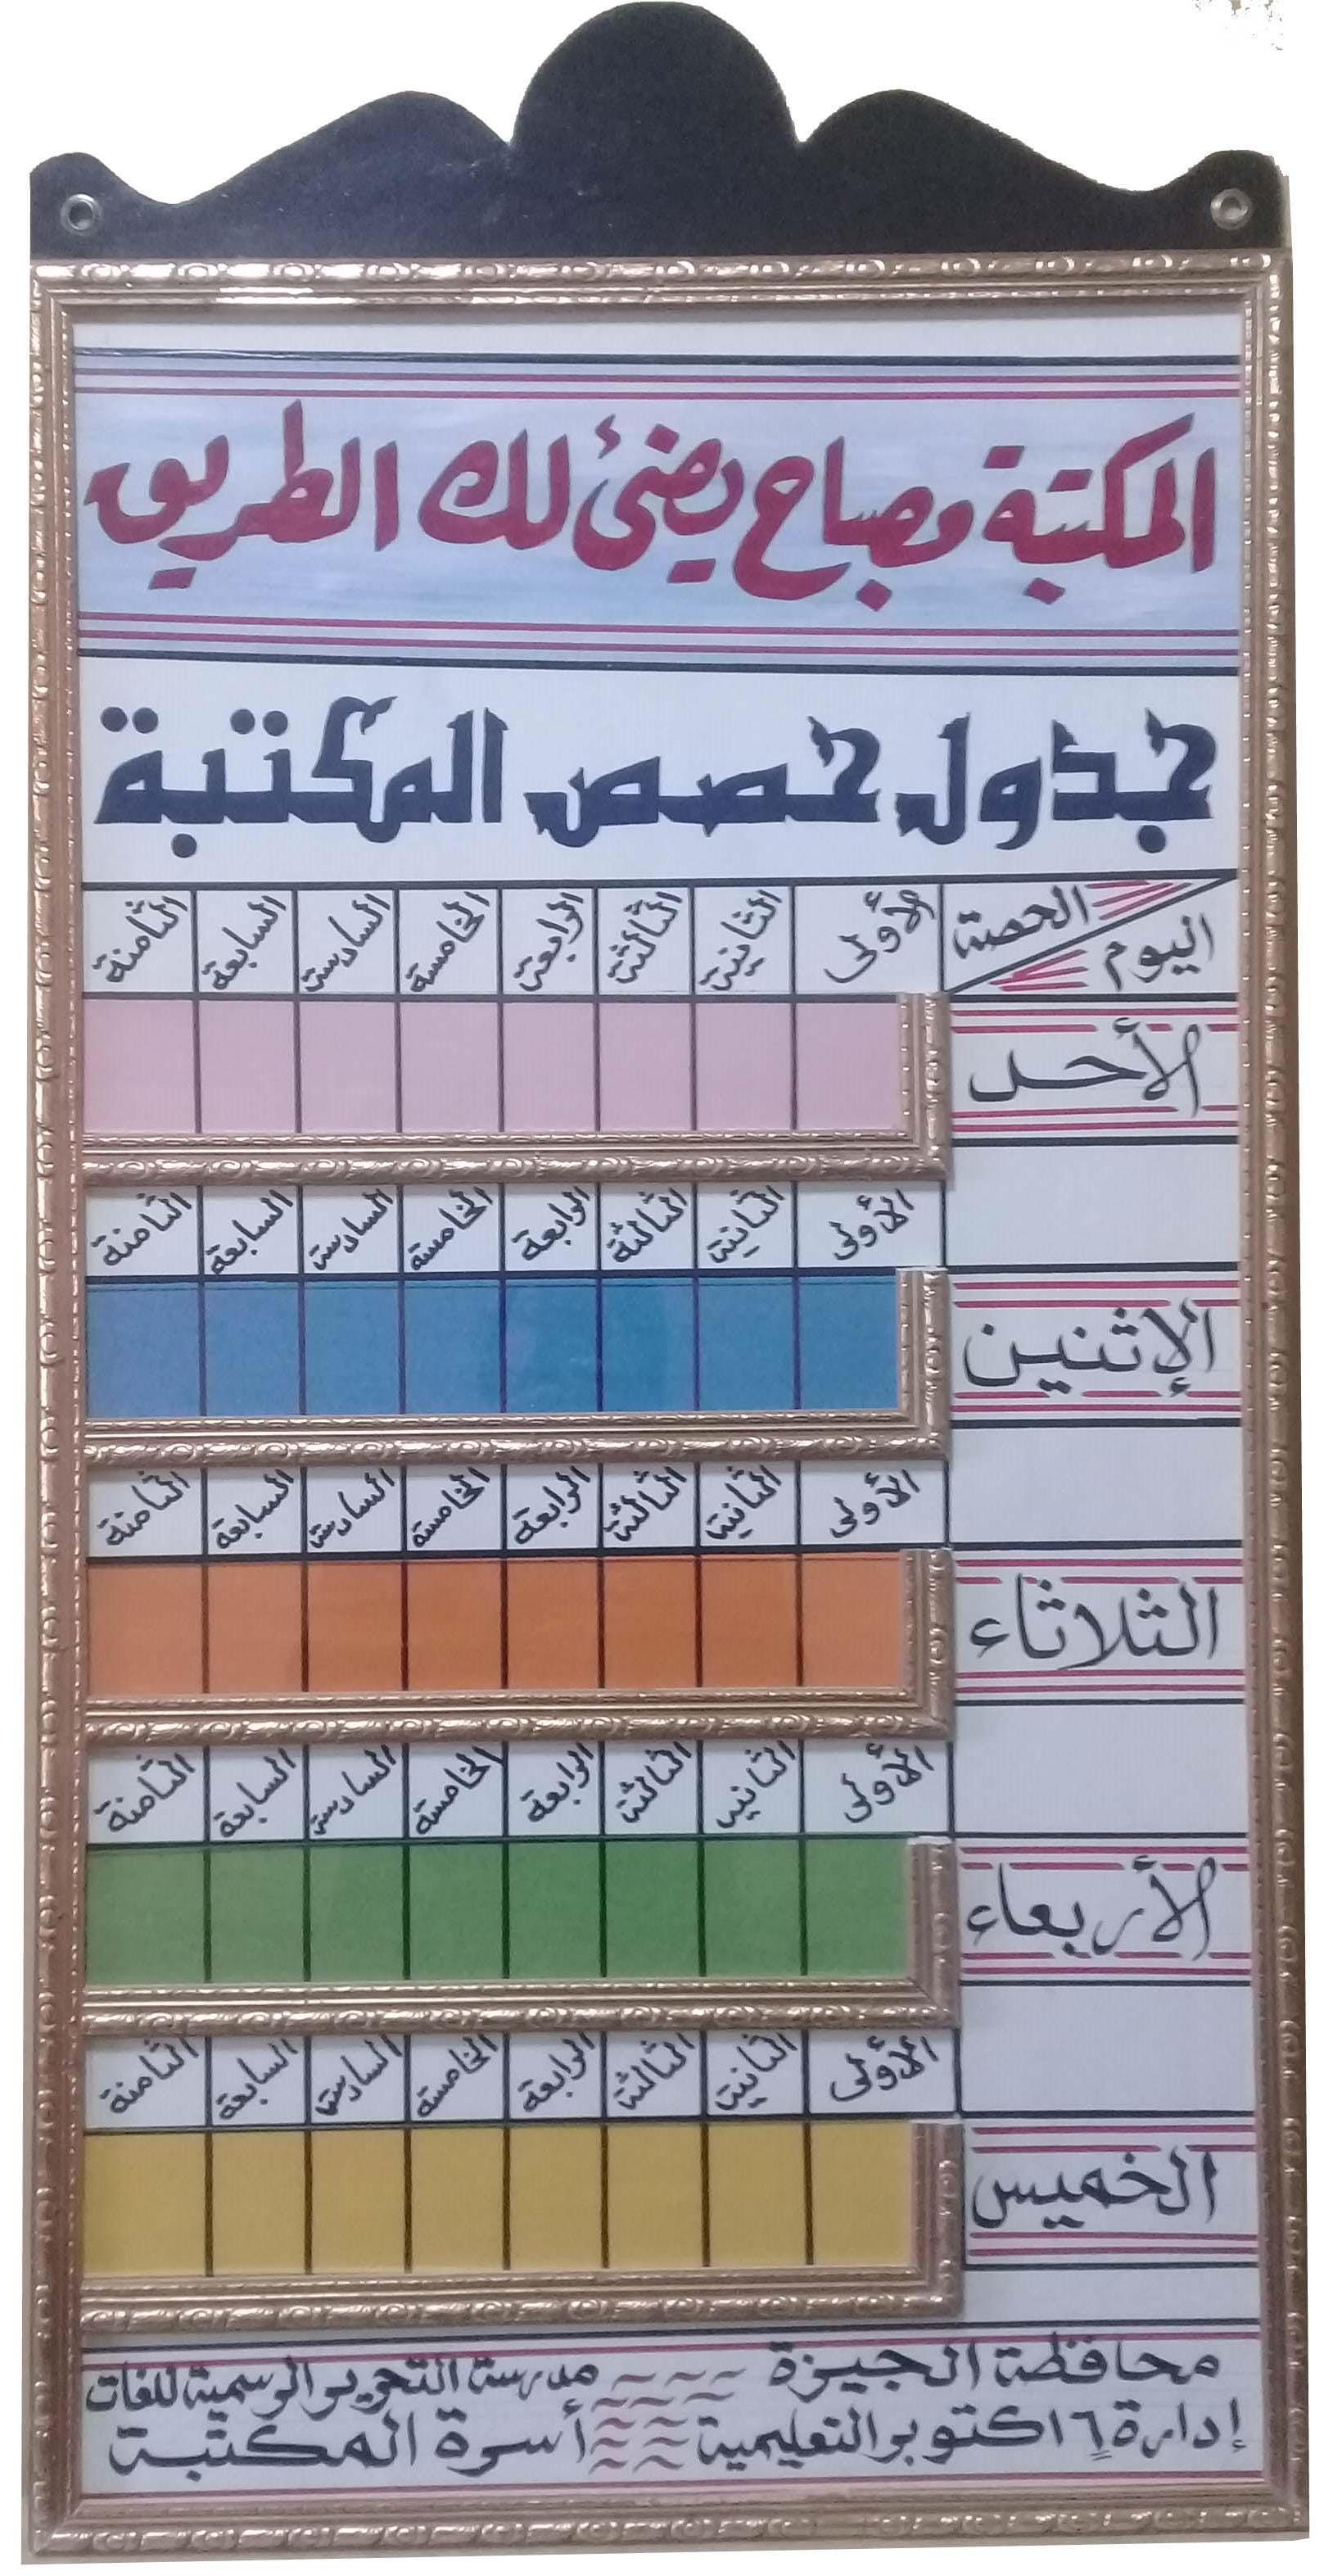 المكتبة مصباح يضئ لك الطريق
جدول حصص المكتبة
الحصة
اليوم
الأولى الثانية الثالثة الرابعة الخامسة السادسة السابعة الثامنة
الأحد
الأولى الثانية الثالثة الرابعة الخامسة السادسة السابعة الثامنة
الإثنين
الأولى الثانية الثالثة الرابعة الخامسة السادسة السابعة الثامنة
الثلاثاء
الأولى الثانية الثالثة الرابعة الخامسة السادسة السابعة الثامنة
الأربعاء
الأولى الثانية الثالثة الرابعة الخامسة السادسة السابعة الثامنة
الخميس
محافظة الجيزة مدرسة التحرير الرسمية للغات
إدارة ٦ اكتوبر التعليمية أسرة المكتبة